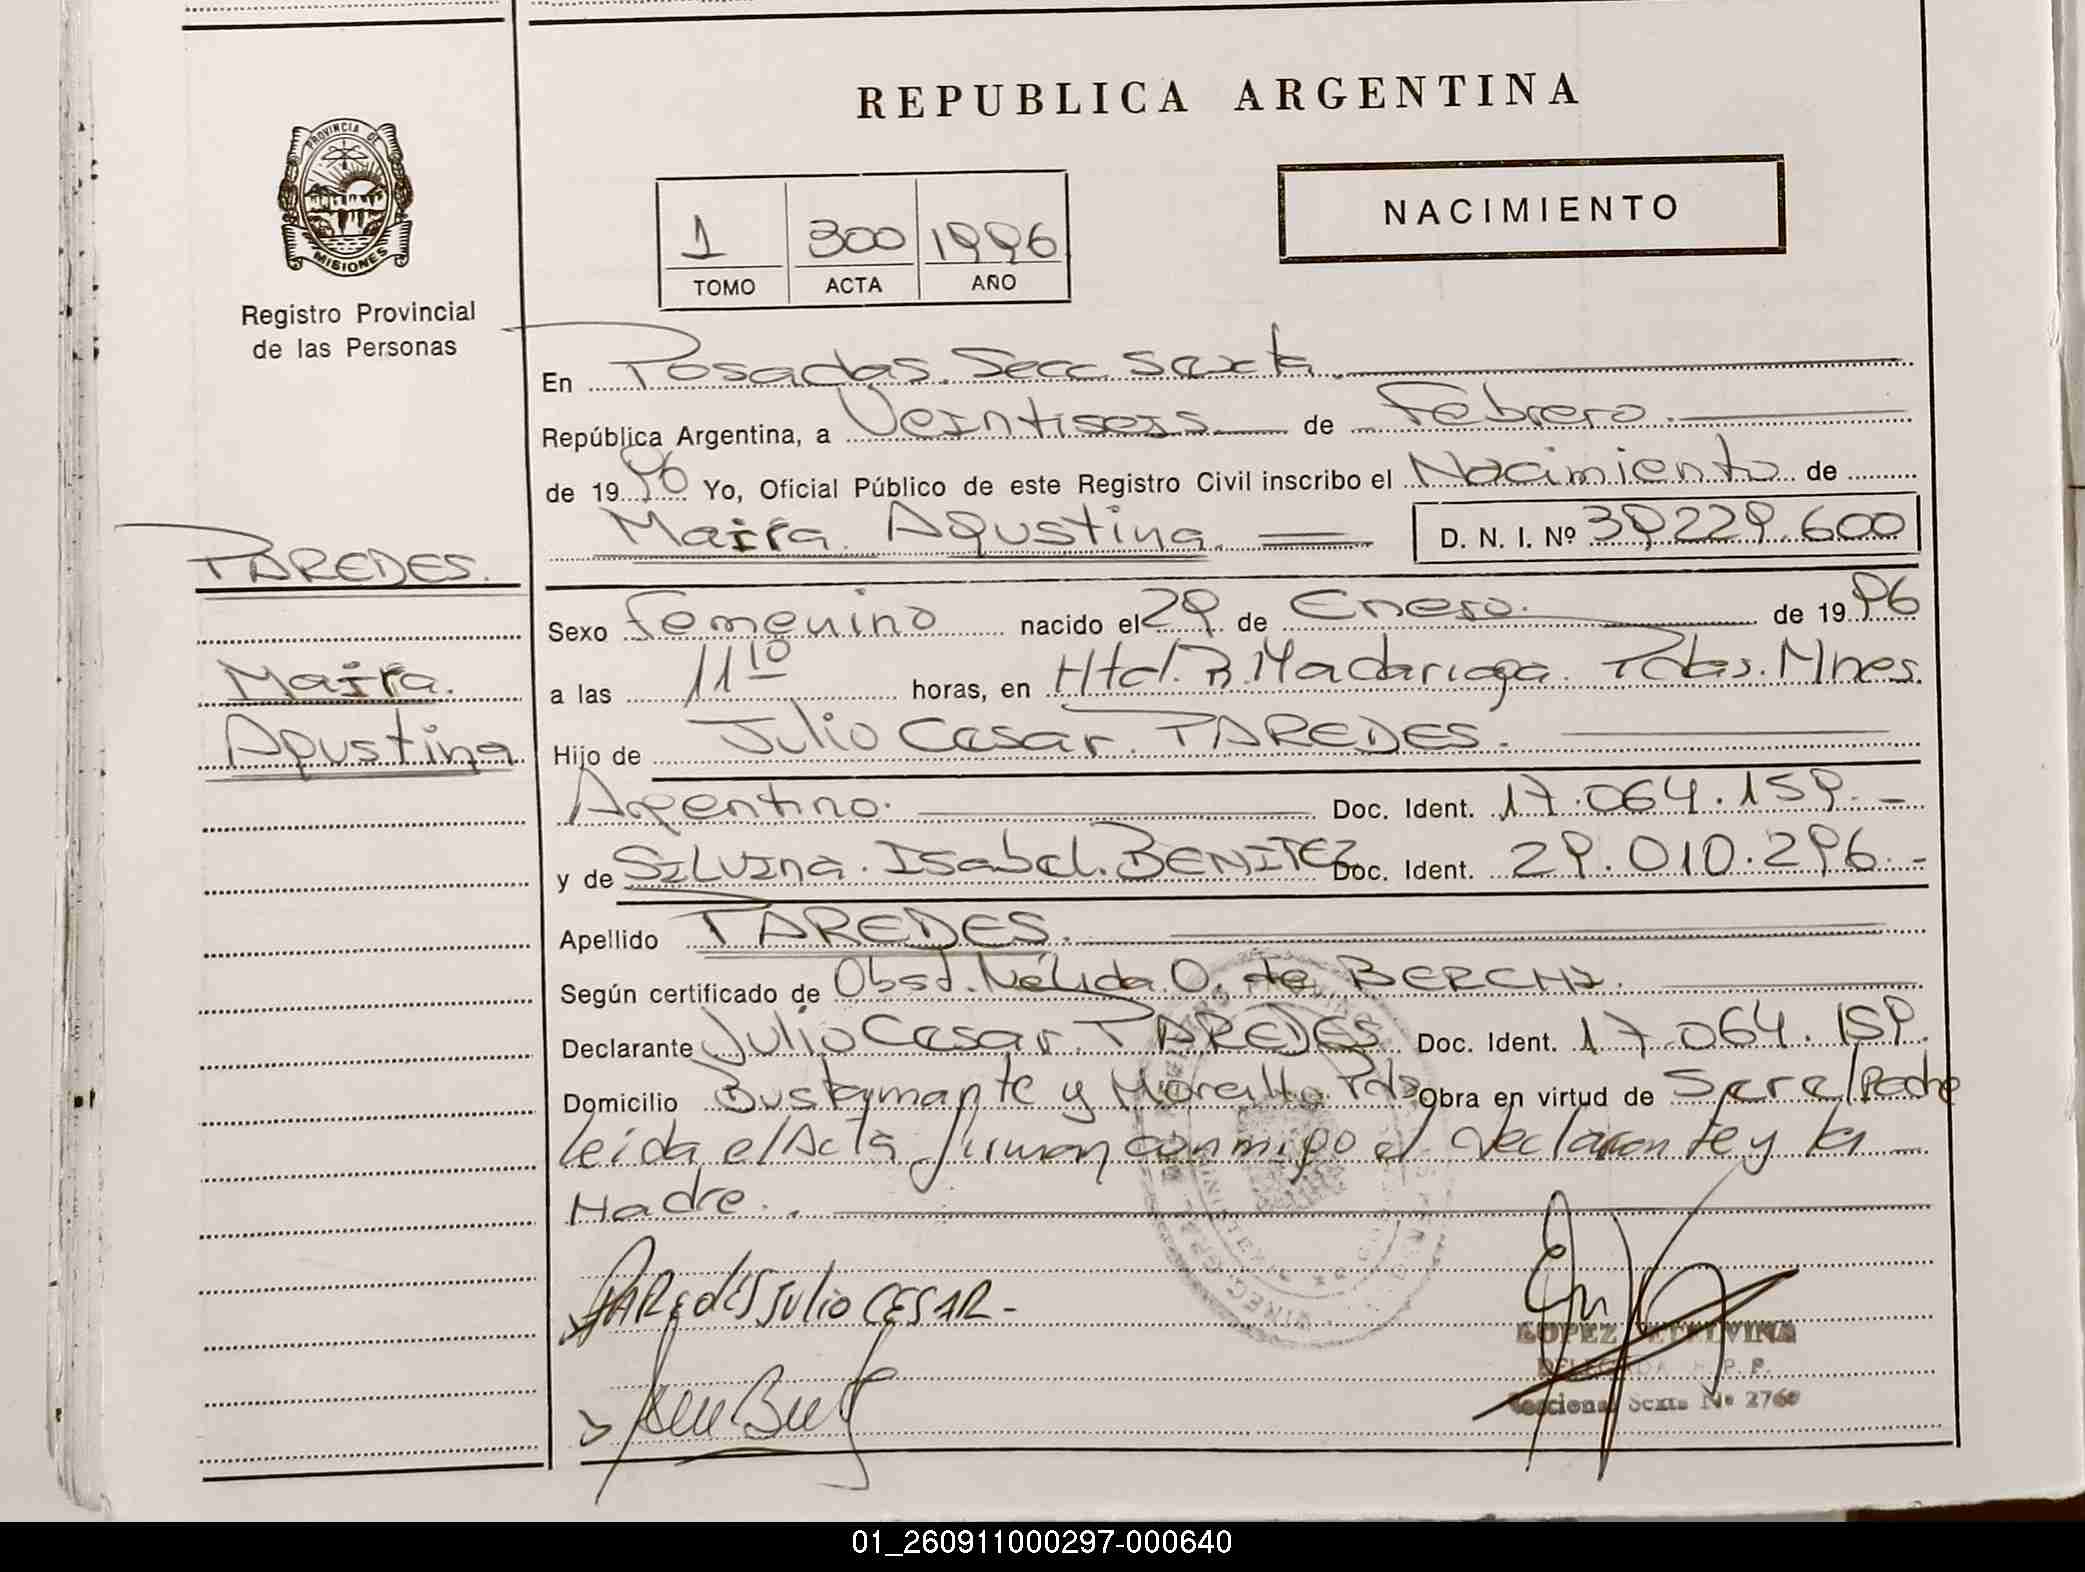 REPUBLICA ARGENTINA
PROVINCIA DE
MISIONES
Registro Provincial
de las Personas
NACIMIENTO
1 300 1996
TOMO ACTA AÑO
En Posadas. Secc. Sexta.
República Argentina, a Veintiseis de Febrero.
de 1996 Yo, Oficial Público de este Registro Civil inscribo el Nacimiento de
Maira. Agustina. D. N. I. Nº 39.229.600
PAREDES.
Maira.
Agustina
Sexo Femenino nacido el 29 de Enero. de 1996
a las 11 10 horas, en Htal. R. Madariaga. Pdas. Mnes.
Hijo de Julio Cesar. PAREDES.
Argentino. Doc. Ident. 17.064.159.-
y de Silvina. Isabel. BENITEZ Doc. Ident. 29.010.296.-
Apellido PAREDES.
Según certificado de Obst. Nélida O. de
Declarante Julio Cesar. PAREDES Doc. Ident. 17.064.159.
Domicilio Bustamante y Pdas Obra en virtud de Ser el Padre
leida el Acta firman conmigo el declarante y la
Madre.
PAREdES JULIO CESAR-
LOPEZ ETELVINA
DELEGADA R. P. P.
Seccional Sexta Nº 2760
01_260911000297-000640